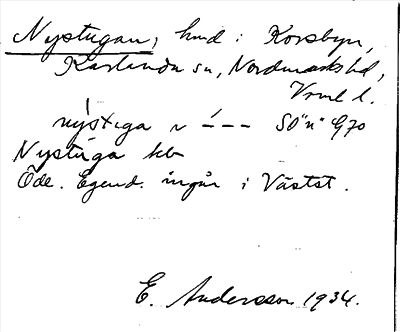 Nystugan, hmd i Korsbyn,
Karlanda sn, Nordmarks hd,
Vrml l.
nýstuga n - - - SO "n" G70
Nystúga kb
Öde. Egend. ingår i Västst.
E. Andersson 1934.